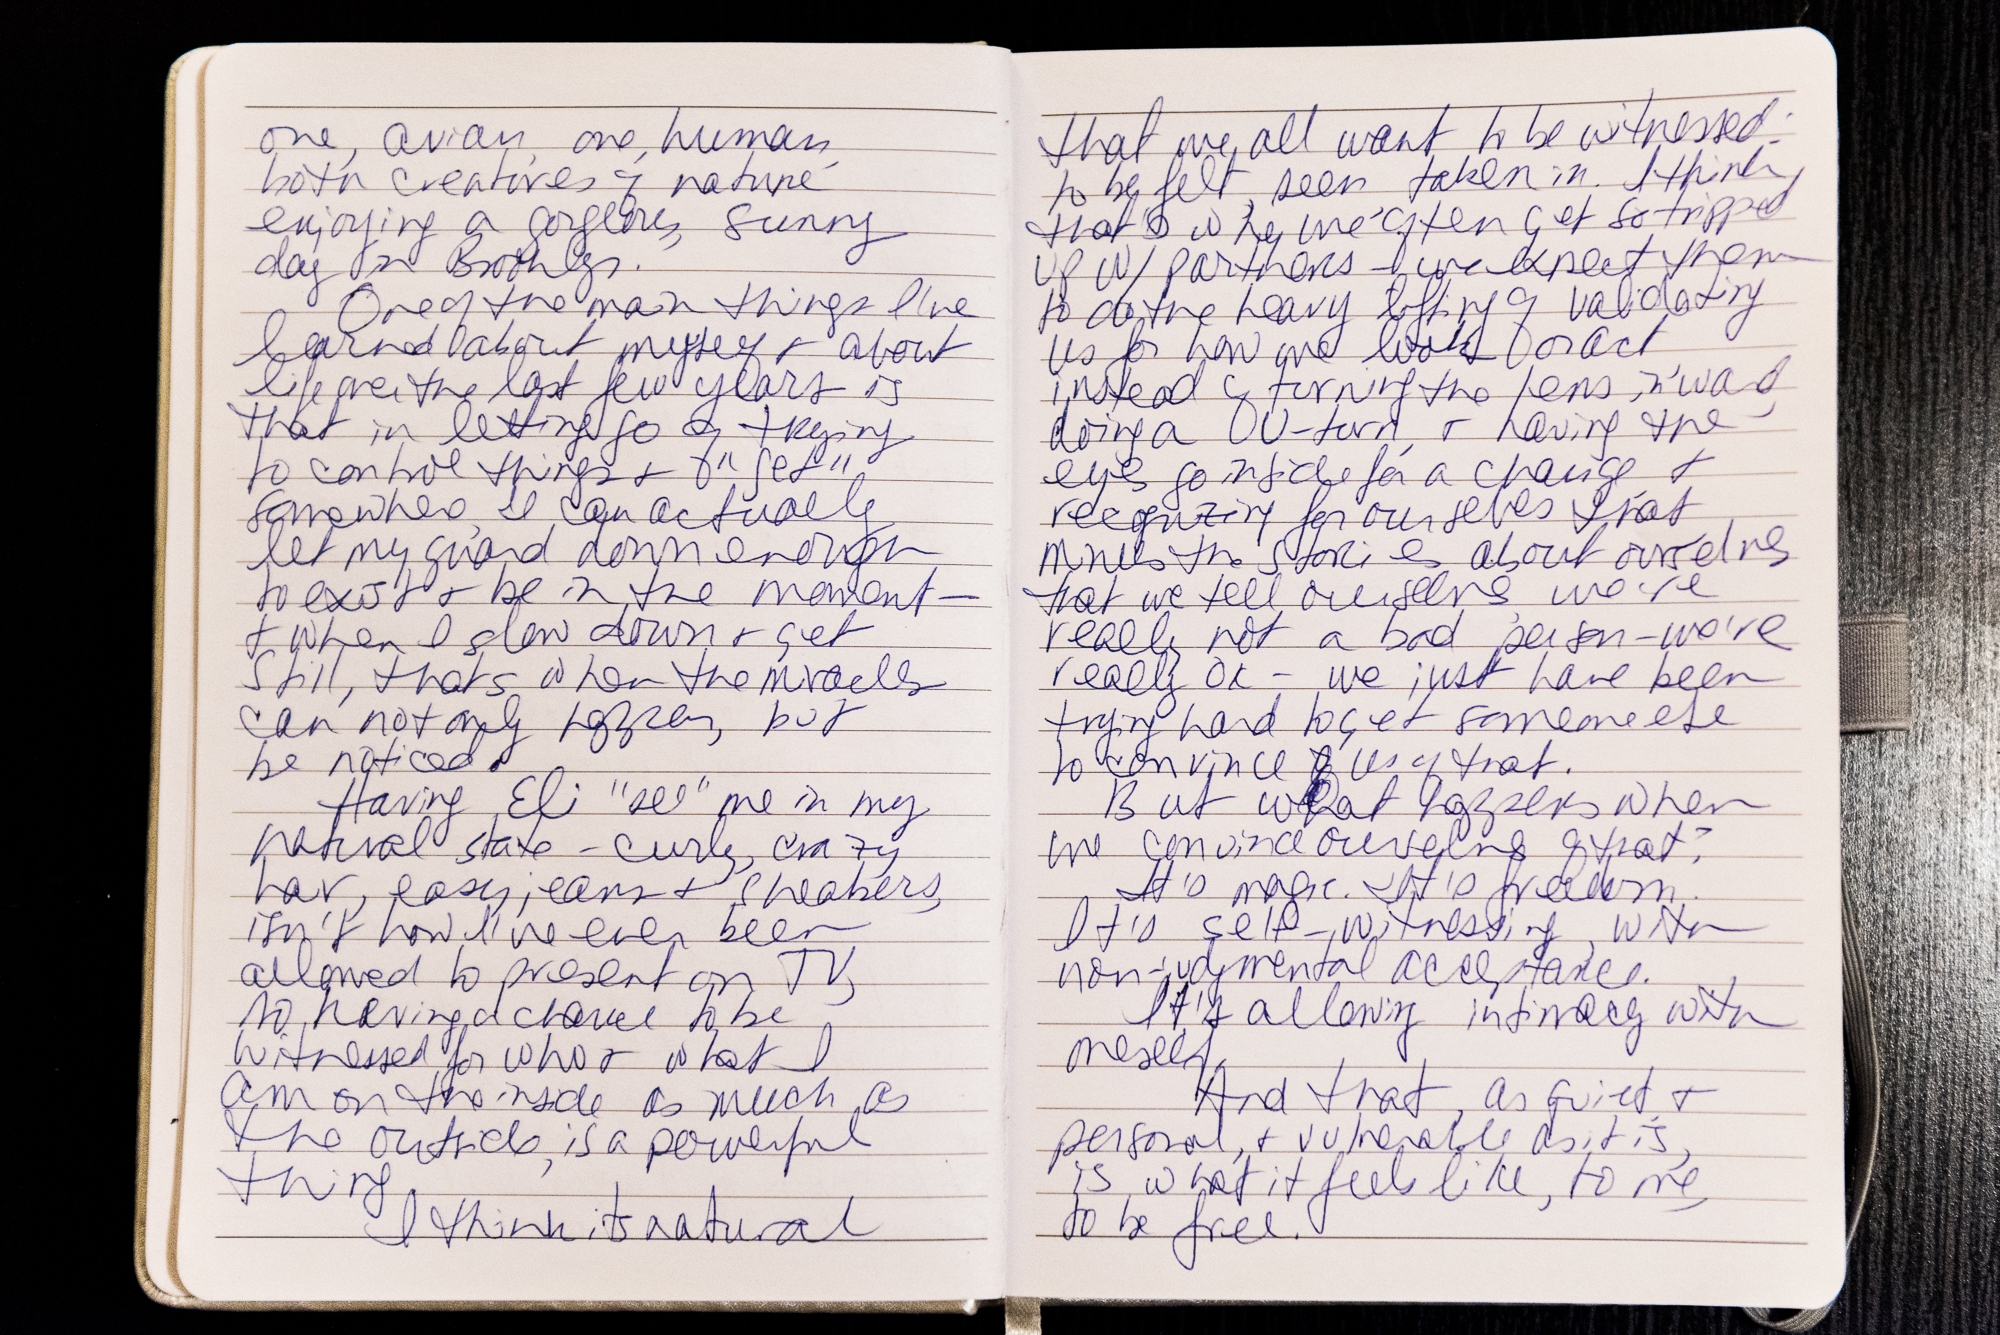 one, avian, one, human,
both creatures of nature
enjoying a gorgeous, sunny
day in Brooklyn.
One of the main things I've
learned about myself + about
life over the last few years is
that in letting go of trying
to control things + "get"
somewhere, I can actually
let my guard down enough
to exist + be in the moment –
+ when I slow down + get
still, that's when the miracles
can not only happen, but
be noticed.
Having Eli "see" me in my
natural state – curly, crazy
hair, easy jeans + sneakers,
isn't how I've ever been
allowed to present on TV,
so having a chance to be
witnessed for who + what I
am on the inside as much as
the outside, is a powerful
thing.
I think it's natural
that we all want to be witnessed.
to be felt, seen, taken in. I think
that's why we often get so tripped
up w/ partners – we expect them
to do the heavy lifting of validating
us for how we look or act
instead of turning the lens inward,
doing a U-turn, + having the
eyes go inside for a change +
recognizing for ourselves that
minus the stories about ourselves
that we tell ourselves, we're
really not a bad person – we're
really OK – we just have been
trying hard to get someone else
to convince us of that.
But what happens when
we convince ourselves of that?
It's magic. It's freedom.
It's self-witnessing, with
non-judgmental acceptance.
It's allowing intimacy with
oneself.
And that, as quiet +
personal, + vulnerable as it is,
is what it feels like, to me,
to be free.